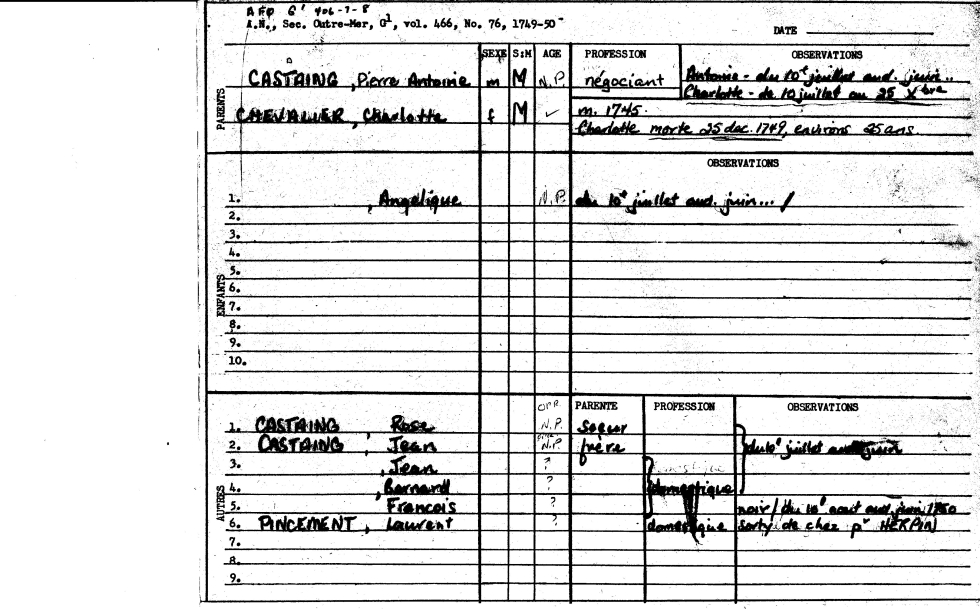 AFO G1 406-7-8
A.N., Sec. Outre-Mer, G1, vol. 466, No. 76, 1749-50
DATE
SEXE S:M AGE PROFESSION OBSERVATIONS
PARENTS
CASTAING, Pierre Antoine m M N.P. négociant Antoine - du 10t juillet aud. juin..
Charlotte - de 10 juillet au 25 Xbre
CHEVALIER, Charlotte f M ✓ m. 1745.
Charlotte morte 25 dec. 1749, environs 25 ans.
OBSERVATIONS
ENFANTS
1. , Angelique N.P. du 10t juillet aud. juin... /
2.
3.
4.
5.
6.
7.
8.
9.
10.
PARENTE PROFESSION OBSERVATIONS
AUTRES
1. CASTAING, Rose N.P. soeur
2. CASTAING, Jean N.P. frère du 10t juillet aud juin
3. , Jean ?
4. , Bernard ? domestique
5. Francois ? noir / du 10t aout aud. juin 1750
6. PINCEMENT, Laurent ? domestique sorty de chez pr HERPIN
7.
8.
9.